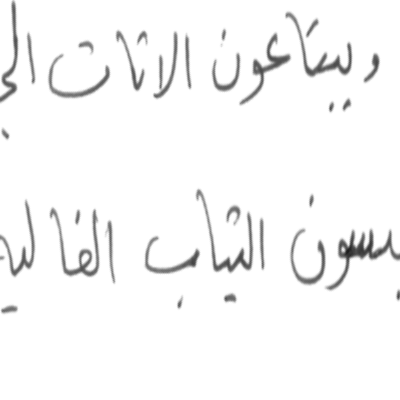 ويبتاعون الاثاث الج
بسون الثياب الغاليه